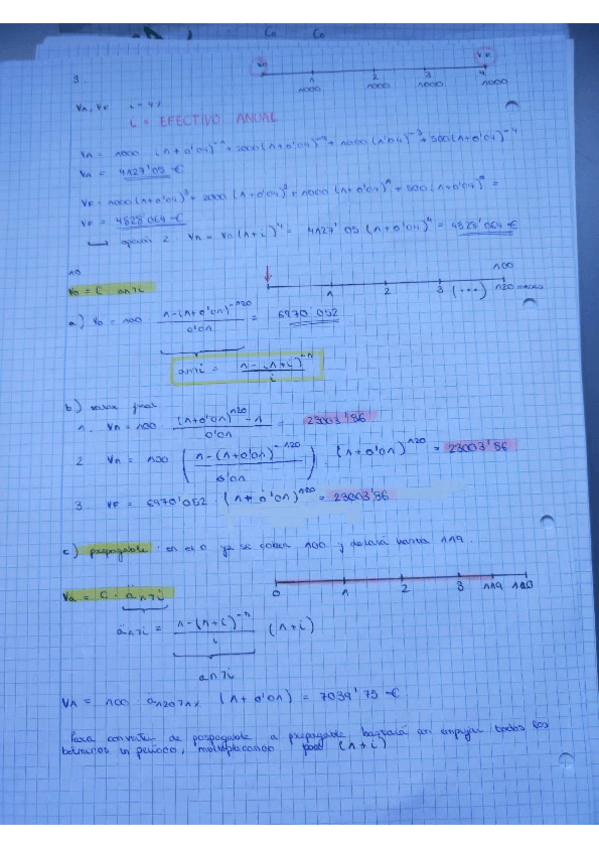 Co Co
3.
VA VF
1 2 3 4
1000 1000 1000 1000
VA, VF i = 4%
i = EFECTIVO ANUAL
VA = 1000 (1+0'04)⁻¹ + 2000 (1+0'04)⁻² + 1000 (1'04)⁻³ + 500 (1+0'04)⁻⁴
VA = 4127'05 €
VF = 1000 (1+0'04)³ + 2000 (1+0'04)² + 1000 (1+0'04)¹ + 500 (1+0'04)⁰ =
VF = 4828'064 €
↳ opción 2 Vn = V0 (1+i)⁴ = 4127'05 (1+0'04)⁴ = 4828'064 €
10
100
V0 = C · an⌉i
1 2 3 (···) 120
a) V0 = 100 (1-(1+0'01)⁻¹²⁰)/0'01 = 6970'052
an⌉i = (1-(1+i)⁻ⁿ)/i
b) valor final
1. Vn = 100 · ((1+0'01)¹²⁰ - 1)/0'01 = 23003'86
2 Vn = 100 ((1-(1+0'01)⁻¹²⁰)/0'01) · (1+0'01)¹²⁰ = 23003'86
3. VF = 6970'052 · (1+0'01)¹²⁰ = 23003'86
c) prepagable: en el 0 ya se cobra 100 y durará hasta 119.
Va = C · än⌉i
0 1 2 3 119 120
än⌉i = (1-(1+i)⁻ⁿ)/i (1+i)
an⌉i
VA = 100 · a120⌉1% (1+0'01) = 7039'75 €
Para convertir de pospagable a prepagable bastará con empujar todos los
términos un período, multiplicando por (1+i)